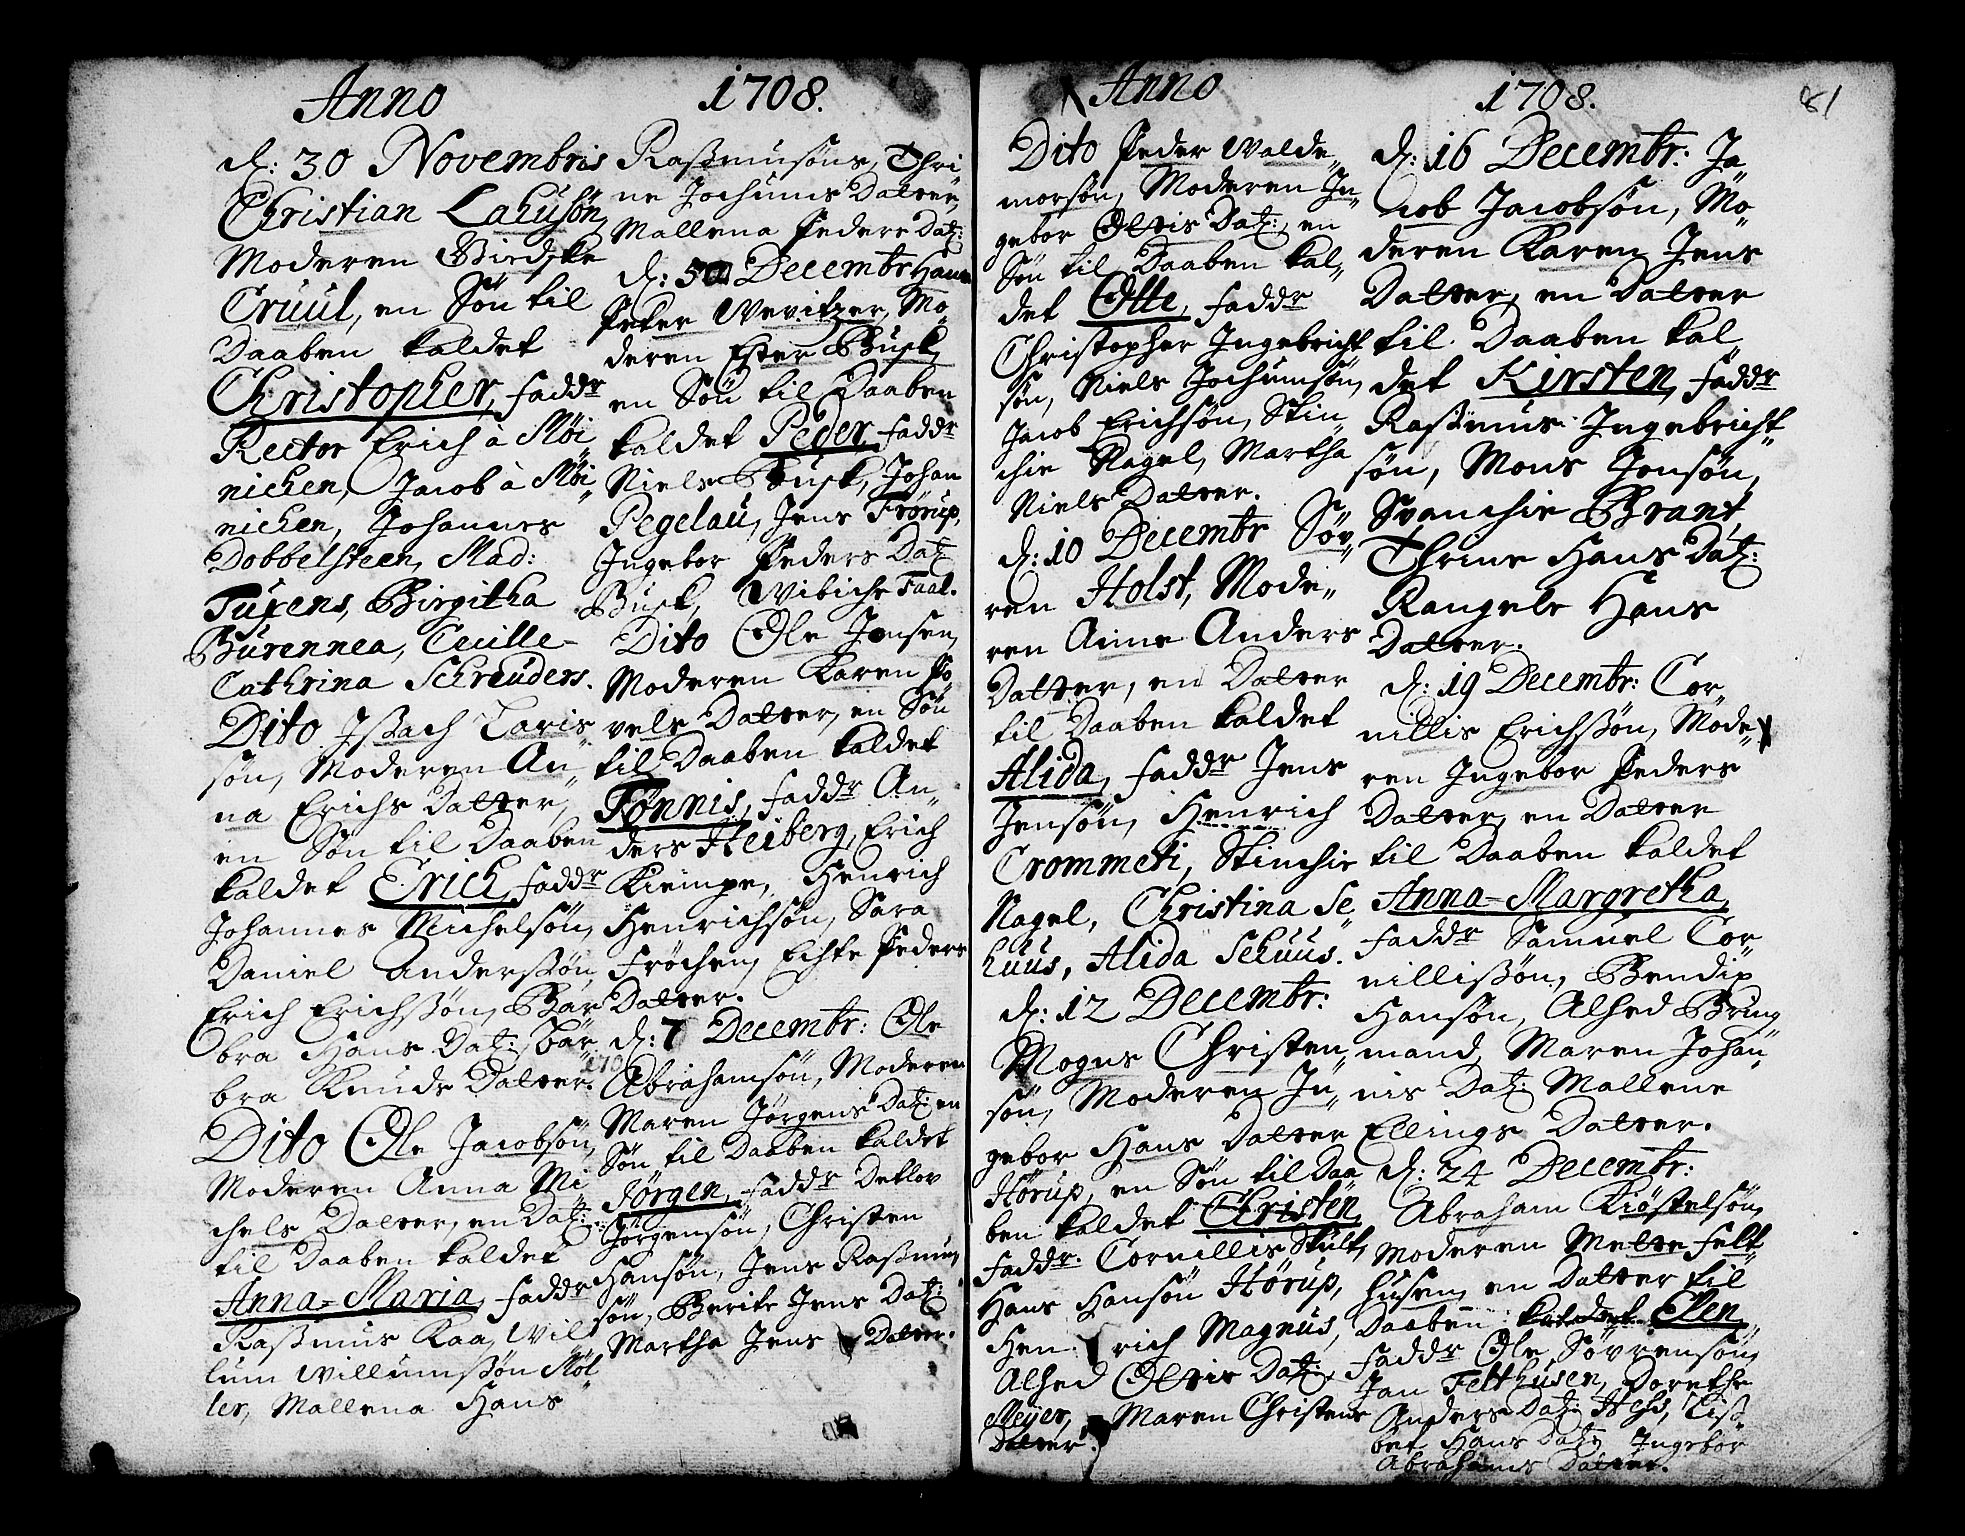 Anno 1708.
d: 30 Novembris
Christian Lahusøn,
Moderen Birdske
Cruul, en Søn til
Daaben kaldet
Christopher, Faddr
Rector Erich à Møi„
nichen, Jacob à Møi„
nichen, Johannes
Dobbelsteen, Mad:
Tuxens, Birgitha
Burennea, Cecille
Cathrina Schreuders.
Dito Issach Laris„
søn, Moderen An„
na Erichs Datter,
en Søn til Daaben
kaldet Erich, Faddr
Johannes Michelsøn,
Daniel Anderssøn,
Erich Erichssøn, Bar„
bra Hans Dat: Bar„
bra Knuds Datter.
Dito Ole Jacobsøn,
Moderen Anna Mi
chels Datter, en Dat:
til Daaben kaldet
Anna-Maria, Faddr
Rasmus Kaa, Wil
lum Willumssøn Møl
ler, Mallena Hans
Rasmusøns, Thri„
ne Jochums Datter,
Mallena Peders Dat:
d: 5 Decembr Hans
Peter Wevitzer, Mo„
deren Ester Busk,
en Søn til Daaben
kaldet Peder, Faddr
Niels Busk, Johan
Pegelau, Jens Frørup,
Ingebor Peders Dat:
Busk, Wibiche Faal.
Dito Ole Jensen,
Moderen Karen Po
vels Datter, en Søn
til Daaben kaldet
Tønnis, Faddr An„
ders Heiberg, Erich
Kiempe, Henrich
Henrichsøn, Sara
Frøchen, Echte Peders
Datter.
d: 7 Decembr: Ole
Abrahamsøn, Moderen
Maren Jørgens Dat: en
Søn til Daaben kaldet
Jørgen, Faddr Detlov
Jörgensøn, Christen
Hansøn, Jens Rasmus
søn, Berite Jens Dat:
Martha Jens Datter.
Anno 1708. 81
Dito Peder Walde„
morsøn, Moderen In„
gebor Oluis Dat: en
Søn til Daaben kal„
det Otte, Faddr
Christopher Ingebricht
søn, Niels Jochumsøn,
Jacob Erichsøn, Stin„
chie Nagel, Martha
Niels Datter.
d: 10 Decembr Søv„
ren Holst, Mode„
ren Anne Anders
Datter, en Datter
til Daaben kaldet
Alida, Faddr Jens
Jensøn, Henrich
Crommeti, Stinchie
Nagel, Christina Se„
huus, Alida Sehuus.
d: 12 Decembr:
Mogns Christen„
søn, Moderen In„
gebor Hans Datter
Hörup, en Søn til Daa
ben kaldet Christen,
Faddr. Cornillis Skult,
Hans Hansøn Hørup,
Hen rich Magnus,
Alhed Oluis Dat:
Meyer, Maren Christens
Datter.
d: 16 Decembr: Ja„
cob Jacobsøn, Mo„
deren Karen Jens
Datter, en Datter
til Daaben kal„
det Kirsten, Faddr
Rasmus Ingebricht„
søn, Mons Jonsøn,
Svanchie Brant,
Thrine Hans Dat:
Rangele Hans
Datter.
d: 19 Decembr: Cor„
nillis Erichssøn, Mode„
ren Ingebor Peders
Datter, en Datter
til Daaben kaldet
Anna-Margretha,
Faddr Samuel Cor„
nillissøn, Bendix
Hansøn, Alhed Bring
mand, Maren Johan„
nis Dat: Mallene
Ellings Datter.
d: 24 Decembr:
Abraham Kiøstelsøn,
Moderen Mette Felt„
husen, en Datter til
Daaben kaldet Elen,
Faddr Ole Sövrensøn,
Jan Felthusen, Dorethe
Anders Dat: Hess, Liss„
bet Hans Dat: Ingebor
Abrahams Datter.